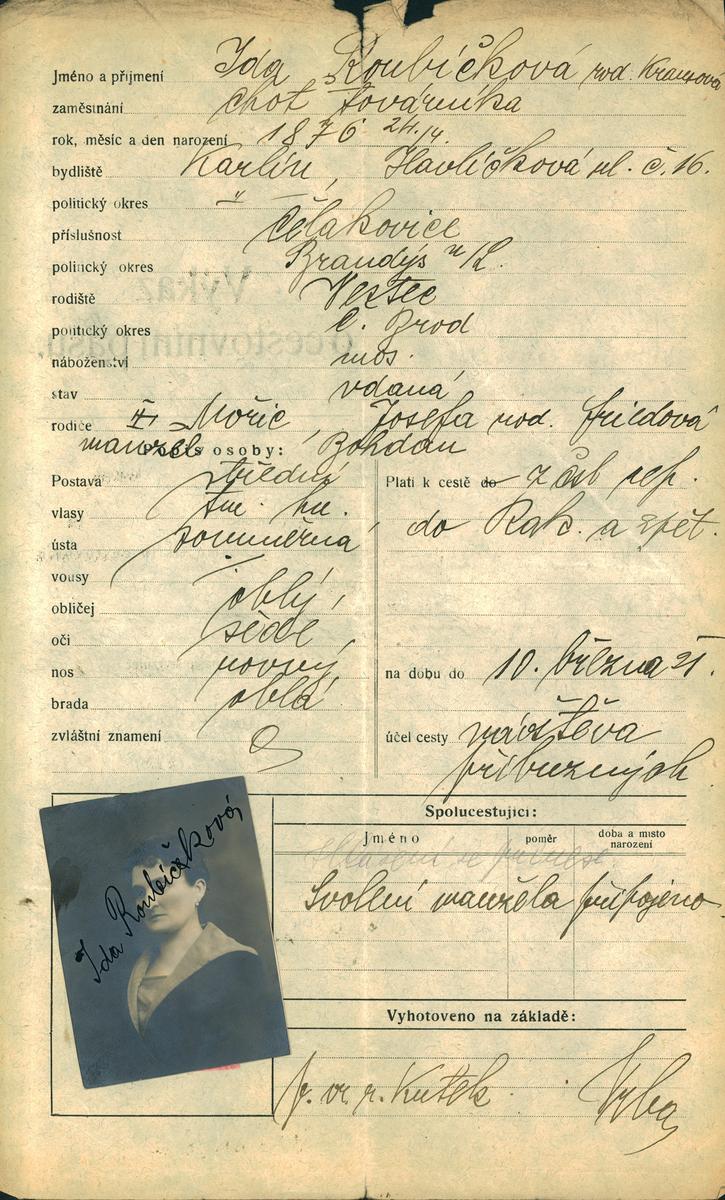 Jméno a příjmení Ida Roubíčková rod. Krausová
zaměstnání choť továrníka
rok, měsíc a den narození 1876 24./4.
bydliště Karlín, Havlíčková ul. č. 16.
politický okres " —
příslušnost Čelakovice
politický okres Brandýs n/L.
rodiště Vestec
politický okres Č. Brod
náboženství mos.
stav vdaná
rodiče Mořic, Josefa rod. Friedová
manžel Bohdan
Popis osoby:
Postava střední
vlasy tm. hn.
ústa souměrná
vousy
obličej oblý,
oči šedé,
nos rovný
brada oblá
zvláštní znamení
Platí k cestě do z čsl rep.
do Rak. a zpět.
na dobu do 10. března 21.
účel cesty návštěva
příbuzných
Ida Roubíčková
Spolucestující:
Jméno poměr doba a místo narození
Svolení manžela připojeno
Vyhotoveno na základě:
p. vr. r. Kutek